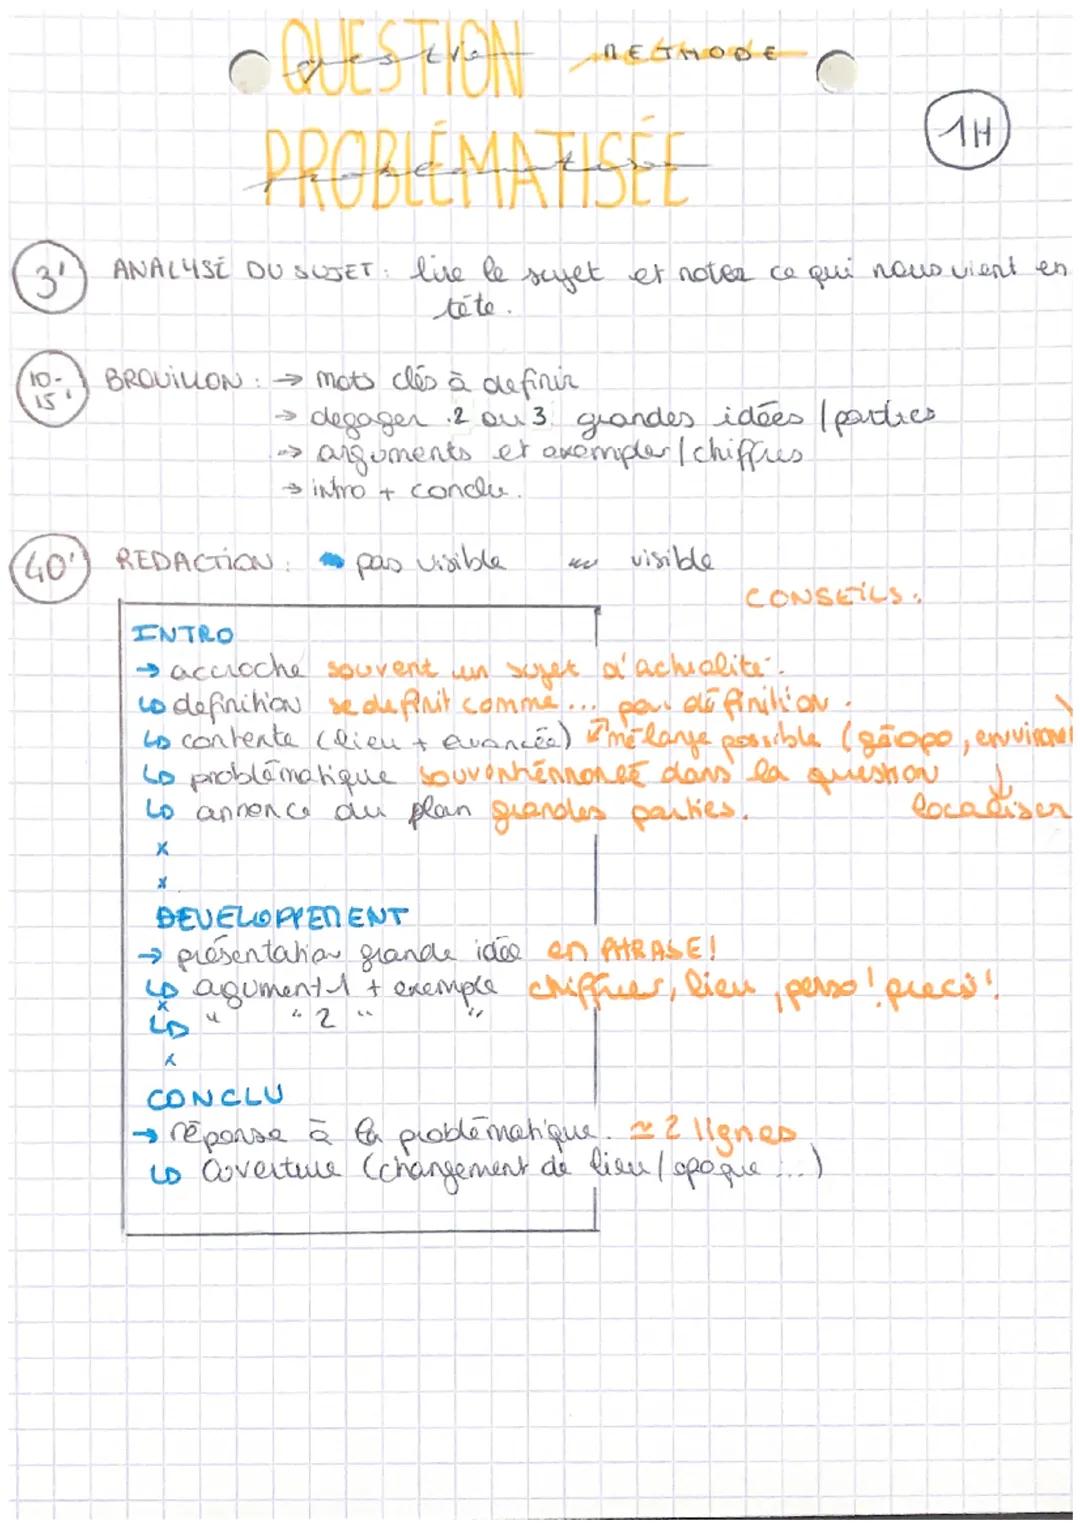 QUESTION METHODE
question
PROBLÉMATISÉE
1H
3' ANALYSE DU SUJET : lire le sujet et noter ce qui nous vient en
tête.
10-15' BROUILLON : → mots clés à definir
→ degager 2 ou 3 grandes idées / parties
→ arguments et exemples / chiffres
→ intro + conclu.
40' REDACTION : pas visible visible
CONSEILS :
INTRO
→ accroche souvent un sujet d'actualité.
↳ definition se definit comme ... par définition.
↳ contexte (lieu + avancée) mélange possible (géopo, environne
↳ problématique souvent énnoncé dans la question
↳ annonce du plan grandes parties. localiser
x
x
DEVELOPPEMENT
→ présentation grande idée en PHRASE!
↳ agument 1 + exemple chiffres, lieu, perso! precis!
x
↳ " " 2 " "
x
CONCLU
→ réponse à la problématique. ≃ 2 lignes
↳ Ouverture (changement de lieu / epoque ...)